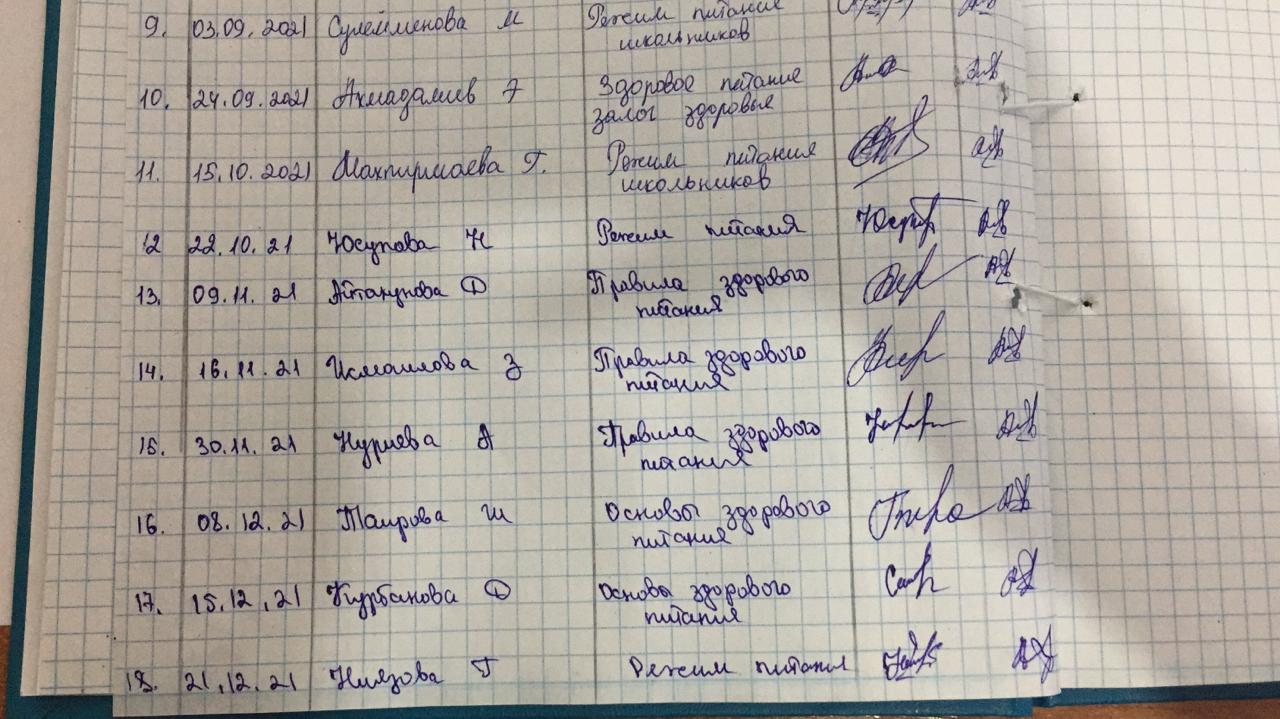 9. 03.09.2021 Сулейменова М Режим питания
школьников
10. 24.09.2021 Ахмадалиев Э Здоровое питание
залог здоровья
11. 15.10.2021 Махпирмаева Г. Режим питания
школьников
12 22.10.21 Юсупова Н Режим питания
13. 09.11.21 Айтакунова Д Правила здорового
питания
14. 16.11.21 Исмаилова З Правила здорового
питания
15. 30.11.21 Нуриева А Правила здорового
питания
16. 08.12.21 Таирова Ш Основы здорового
питания
17. 15.12.21 Курбанова Д Основы здорового
питания
18. 21.12.21 Ниязова Г Режим питания